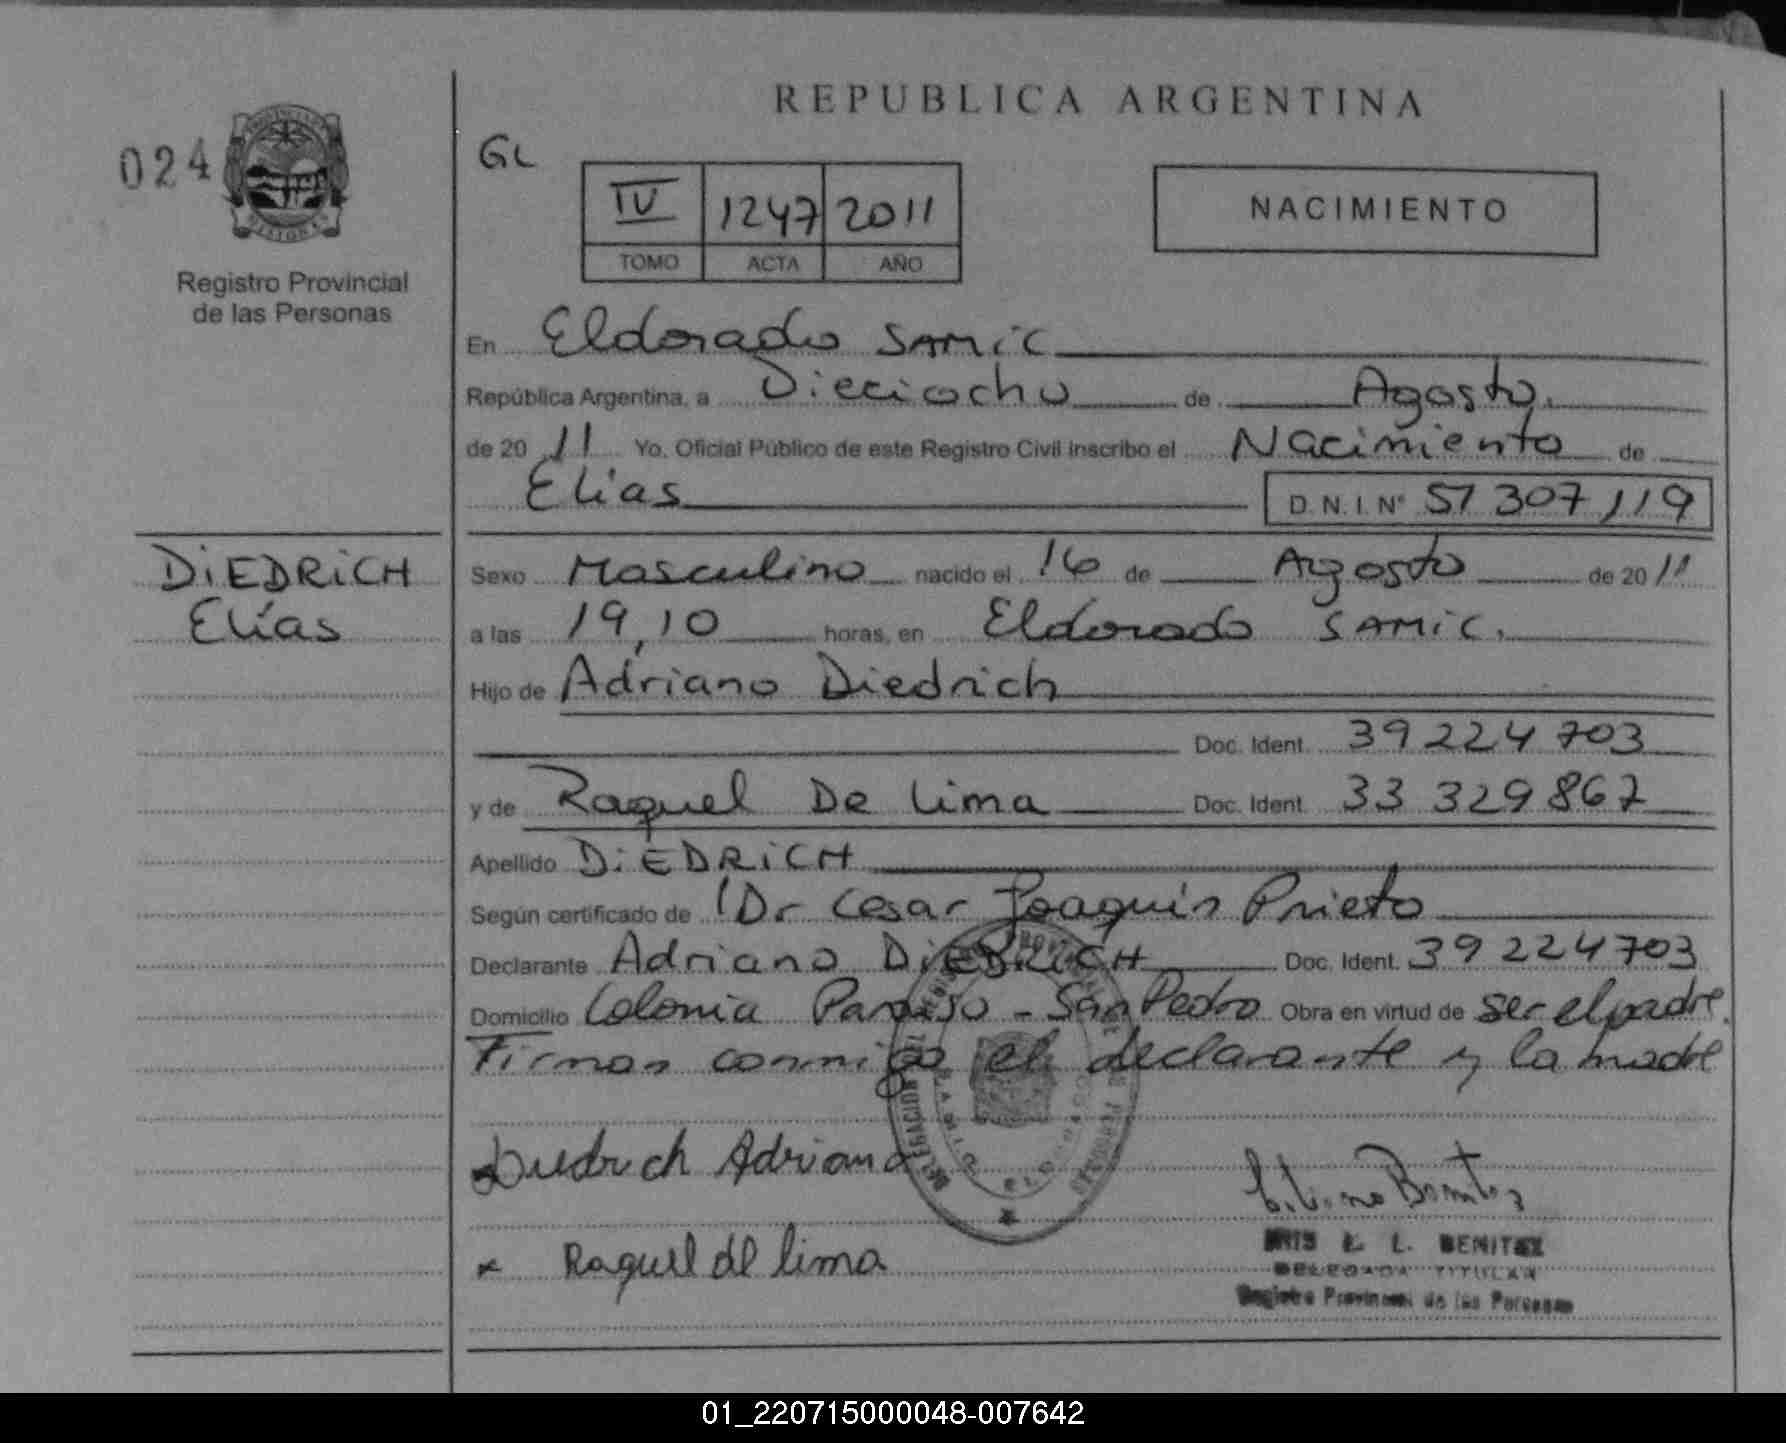 REPUBLICA ARGENTINA
024
GL
IV 1247 2011
TOMO ACTA AÑO
NACIMIENTO
Registro Provincial
de las Personas
En Eldorado SAMIC
República Argentina, a Dieciocho de Agosto.
de 20 11 Yo, Oficial Público de este Registro Civil inscribo el Nacimiento de
Elías D.N.I. Nº 51 307 119
DiEDRiCH
Elías
Sexo Masculino nacido el 16 de Agosto de 20 11
a las 19,10 horas, en Eldorado SAMIC.
Hijo de Adriano Diedrich
Doc. Ident. 39 224 703
y de Raquel De Lima Doc. Ident. 33 329 867
Apellido DiEDRiCH
Según certificado de Dr Cesar Joaquín Prieto
Declarante Adriano DiEDRiCH Doc. Ident. 39 224 703
Domicilio Colonia Paraiso - San Pedro Obra en virtud de ser el padre.
Firman conmigo el declarante y la madre
Diedrich Adriano
Raquel de lima
L. BENITEZ
DELEGADA TITULAR
Registro Provincial de las Personas
01_220715000048-007642